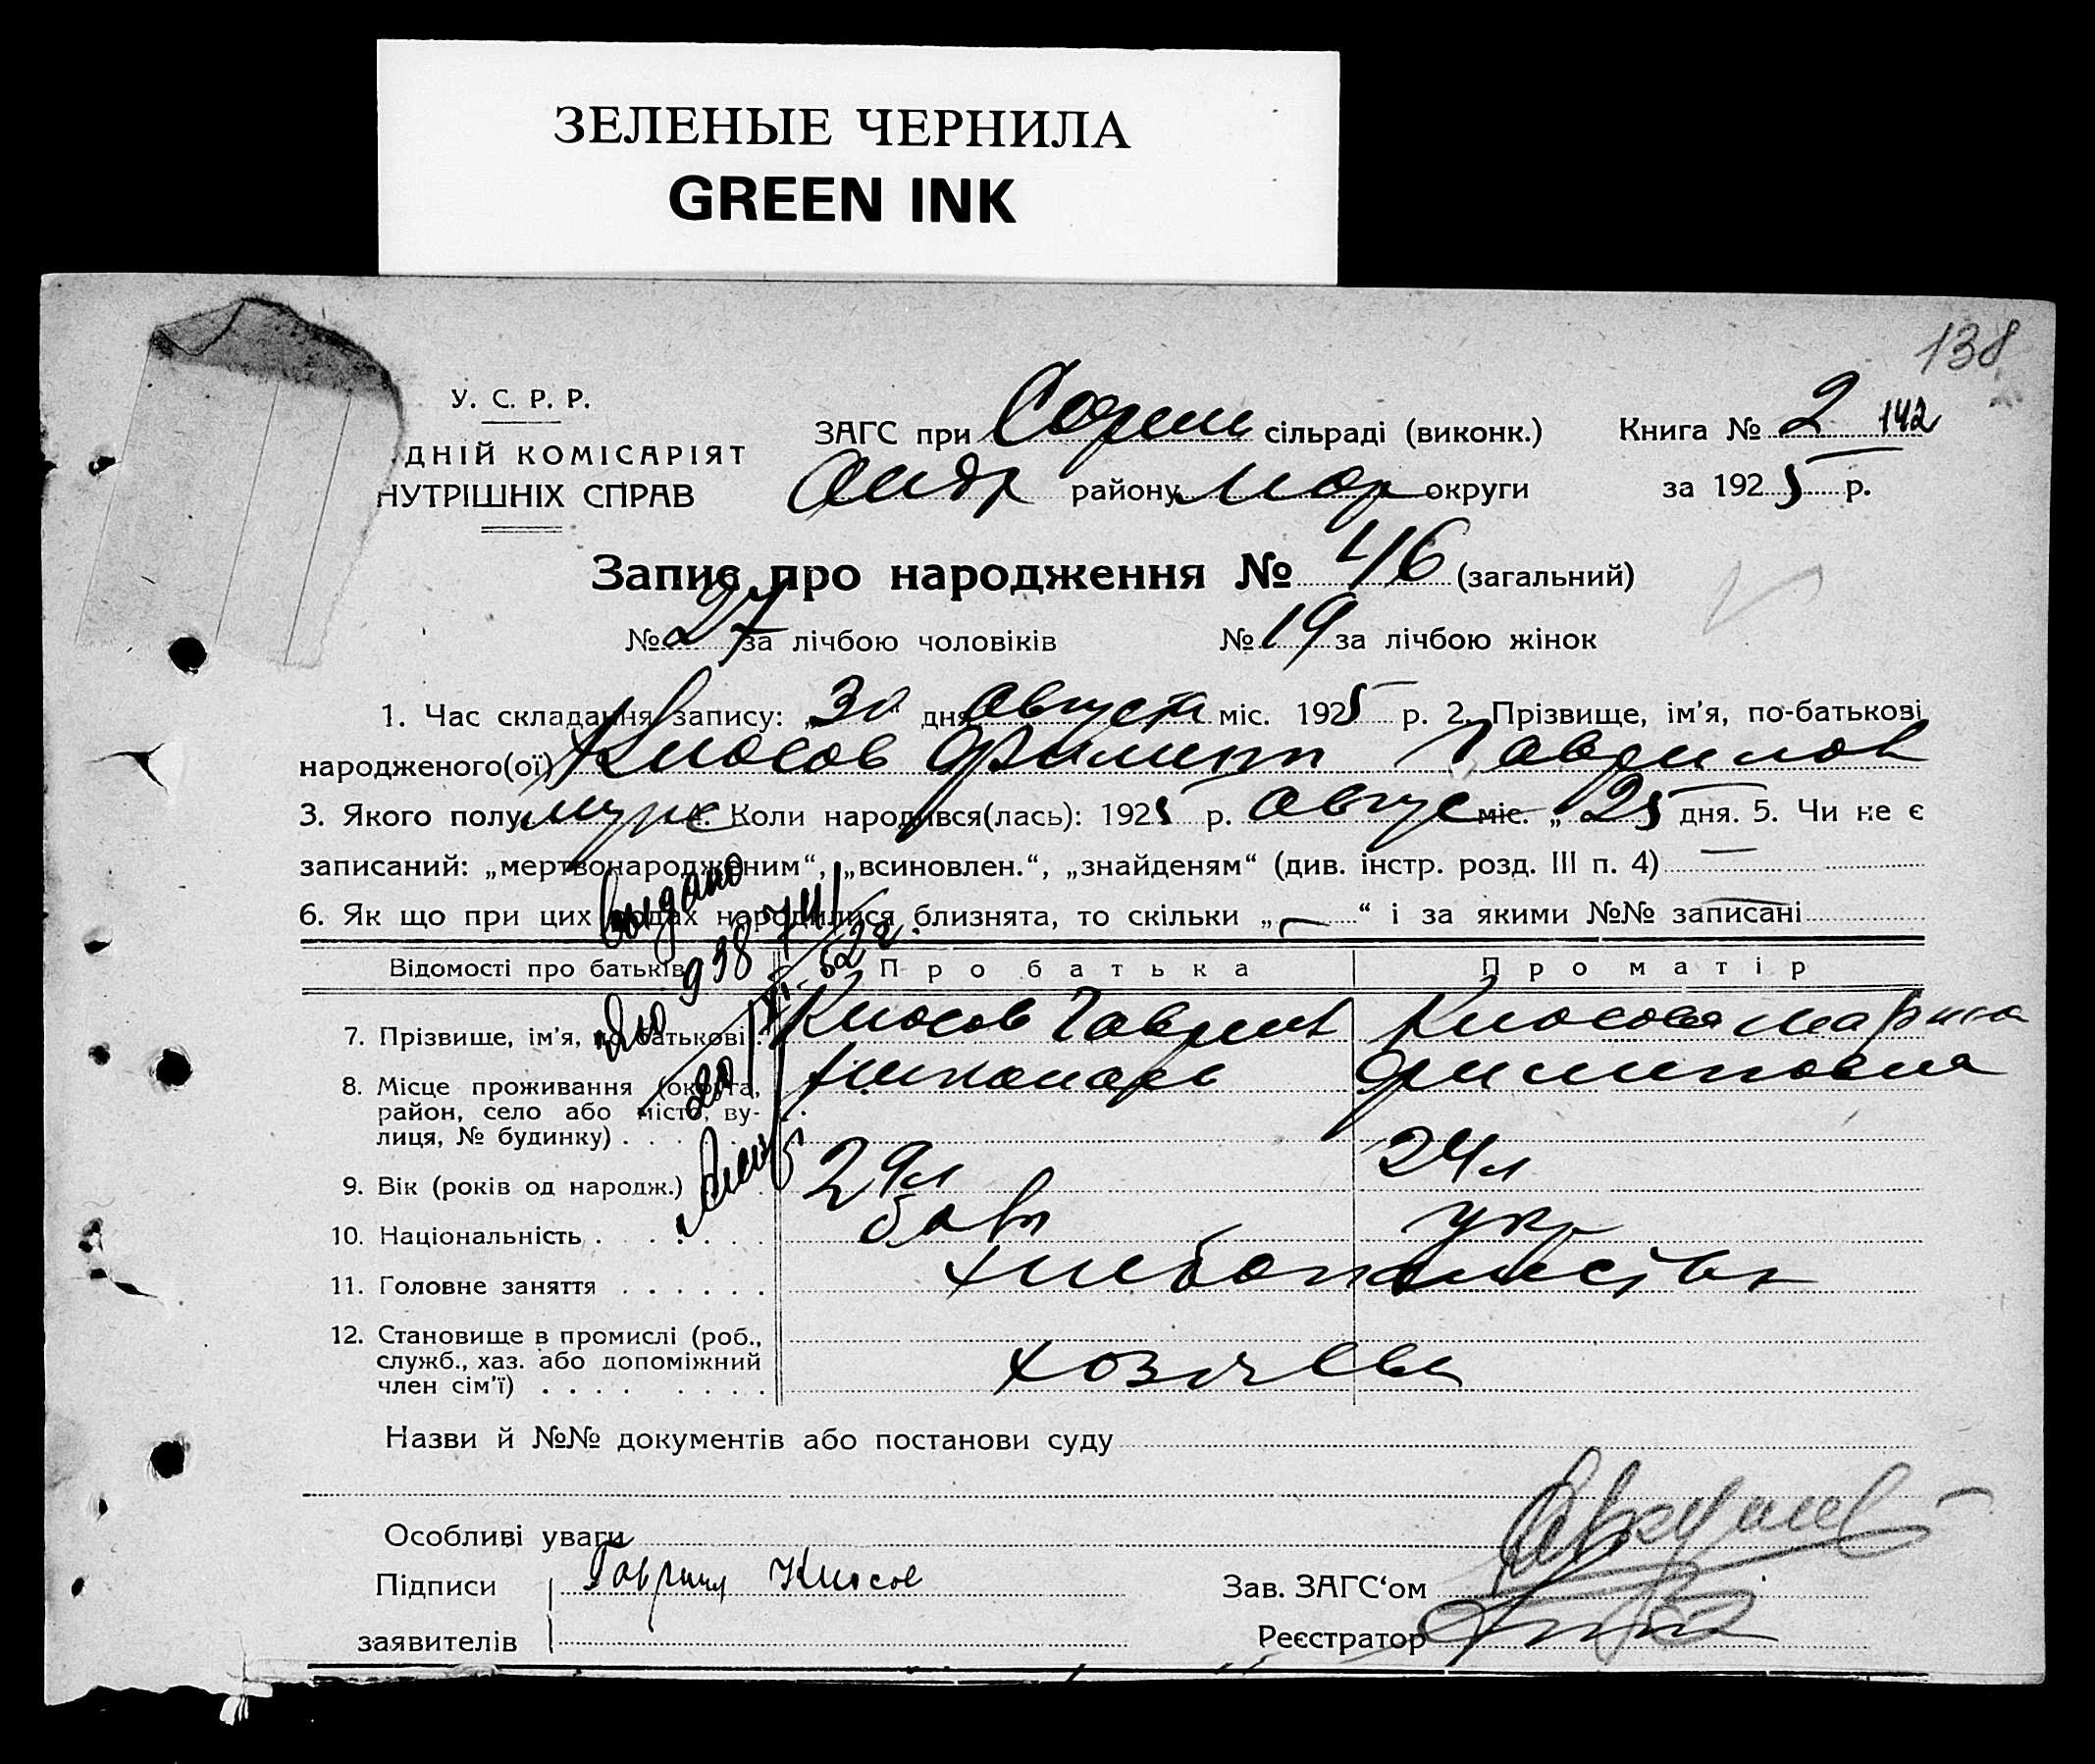 ЗЕЛЕНЫЕ ЧЕРНИЛА
GREEN INK
138
У. С. Р. Р.
ДНІЙ КОМІСАРІЯТ
НУТРІШНІХ СПРАВ
ЗАГС при сільраді (виконк.) Книга № 2 142
Андр району округи за 1925 р.
Запис про народження № 46 (загальний)
№ 27 за лічбою чоловіків № 19 за лічбою жінок
1. Час складання запису: „30“ дня августа міс. 1925 р. 2. Прізвище, ім'я, по-батькові
народженого(ої) Клюсов Филипп Гаврилов
3. Якого полу муж 4. Коли народився(лась): 1925 р. Август міс. „25 дня. 5. Чи не є
записаний: „мертвонародженим“, „всиновлен.“, „знайденям“ (див. інстр. розд. III п. 4) —
6. Як що при цих родах народилися близнята, то скільки „—“ і за якими №№ записані
Видано
938
Відомості про батьків Про батька Про матір
7. Прізвище, ім'я, по батькові . Клюсов Гаврил Клюсова Мария
8. Місце проживання (округа, Филиповна
район, село або місто, ву-
лиця, № будинку) .
9. Вік (років од народж.) 29л 24л
10. Національність . . . . . . укр
11. Головне заняття . . . . . . хлебопашество
12. Становище в промислі (роб.,
служб., хаз. або допоміжний
член сім'ї) . . . . . . . .
Назви й №№ документів або постанови суду
Особливі уваги
Підписи Гаврил Клюсов Зав. ЗАГС‘ом
заявителів Реєстратор